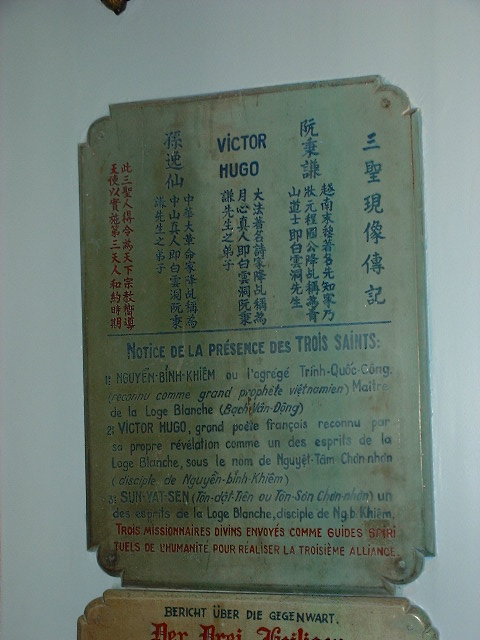 三聖現像傳記
阮秉謙
越南末黎著名先知家乃
狀元程國公降乩稱為青
山道士即白雲洞先生
VICTOR
HUGO
大法著名詩家降乩稱為
月心真人即白雲洞阮秉
謙先生之弟子
孫逸仙
中華大革命家降乩稱為
中山真人即白雲洞阮秉
謙先生之弟子
此三聖人得令為天下宗教嚮導
天使以實施第三天人和約時期
NOTICE DE LA PRÉSENCE DES TROIS SAINTS:
1º NGUYỄN-BỈNH-KHIÊM ou l'agrégé Trình-Quốc-Công.
(reconnu comme grand prophète viêtnamien) Maître
de la Loge Blanche (Bạch-Vân-Động)
2º VICTOR HUGO, grand poète français reconnu par
sa propre révélation comme un des esprits de la
Loge Blanche, sous le nom de Nguyệt-Tâm Chơn-nhơn
(disciple de Nguyễn-bỉnh-Khiêm)
3º SUN-YAT-SEN (Tôn-dật-Tiên ou Tôn-Sơn Chơn-nhơn) un
des esprits de la Loge Blanche, disciple de Ng.b. Khiêm.
TROIS MISSIONNAIRES DIVINS ENVOYÉS COMME GUIDES SPIRI
TUELS DE L'HUMANITÉ POUR RÉALISER LA TROISIÈME ALLIANCE.
BERICHT ÜBER DIE GEGENWART.
Der Drei Heiligen